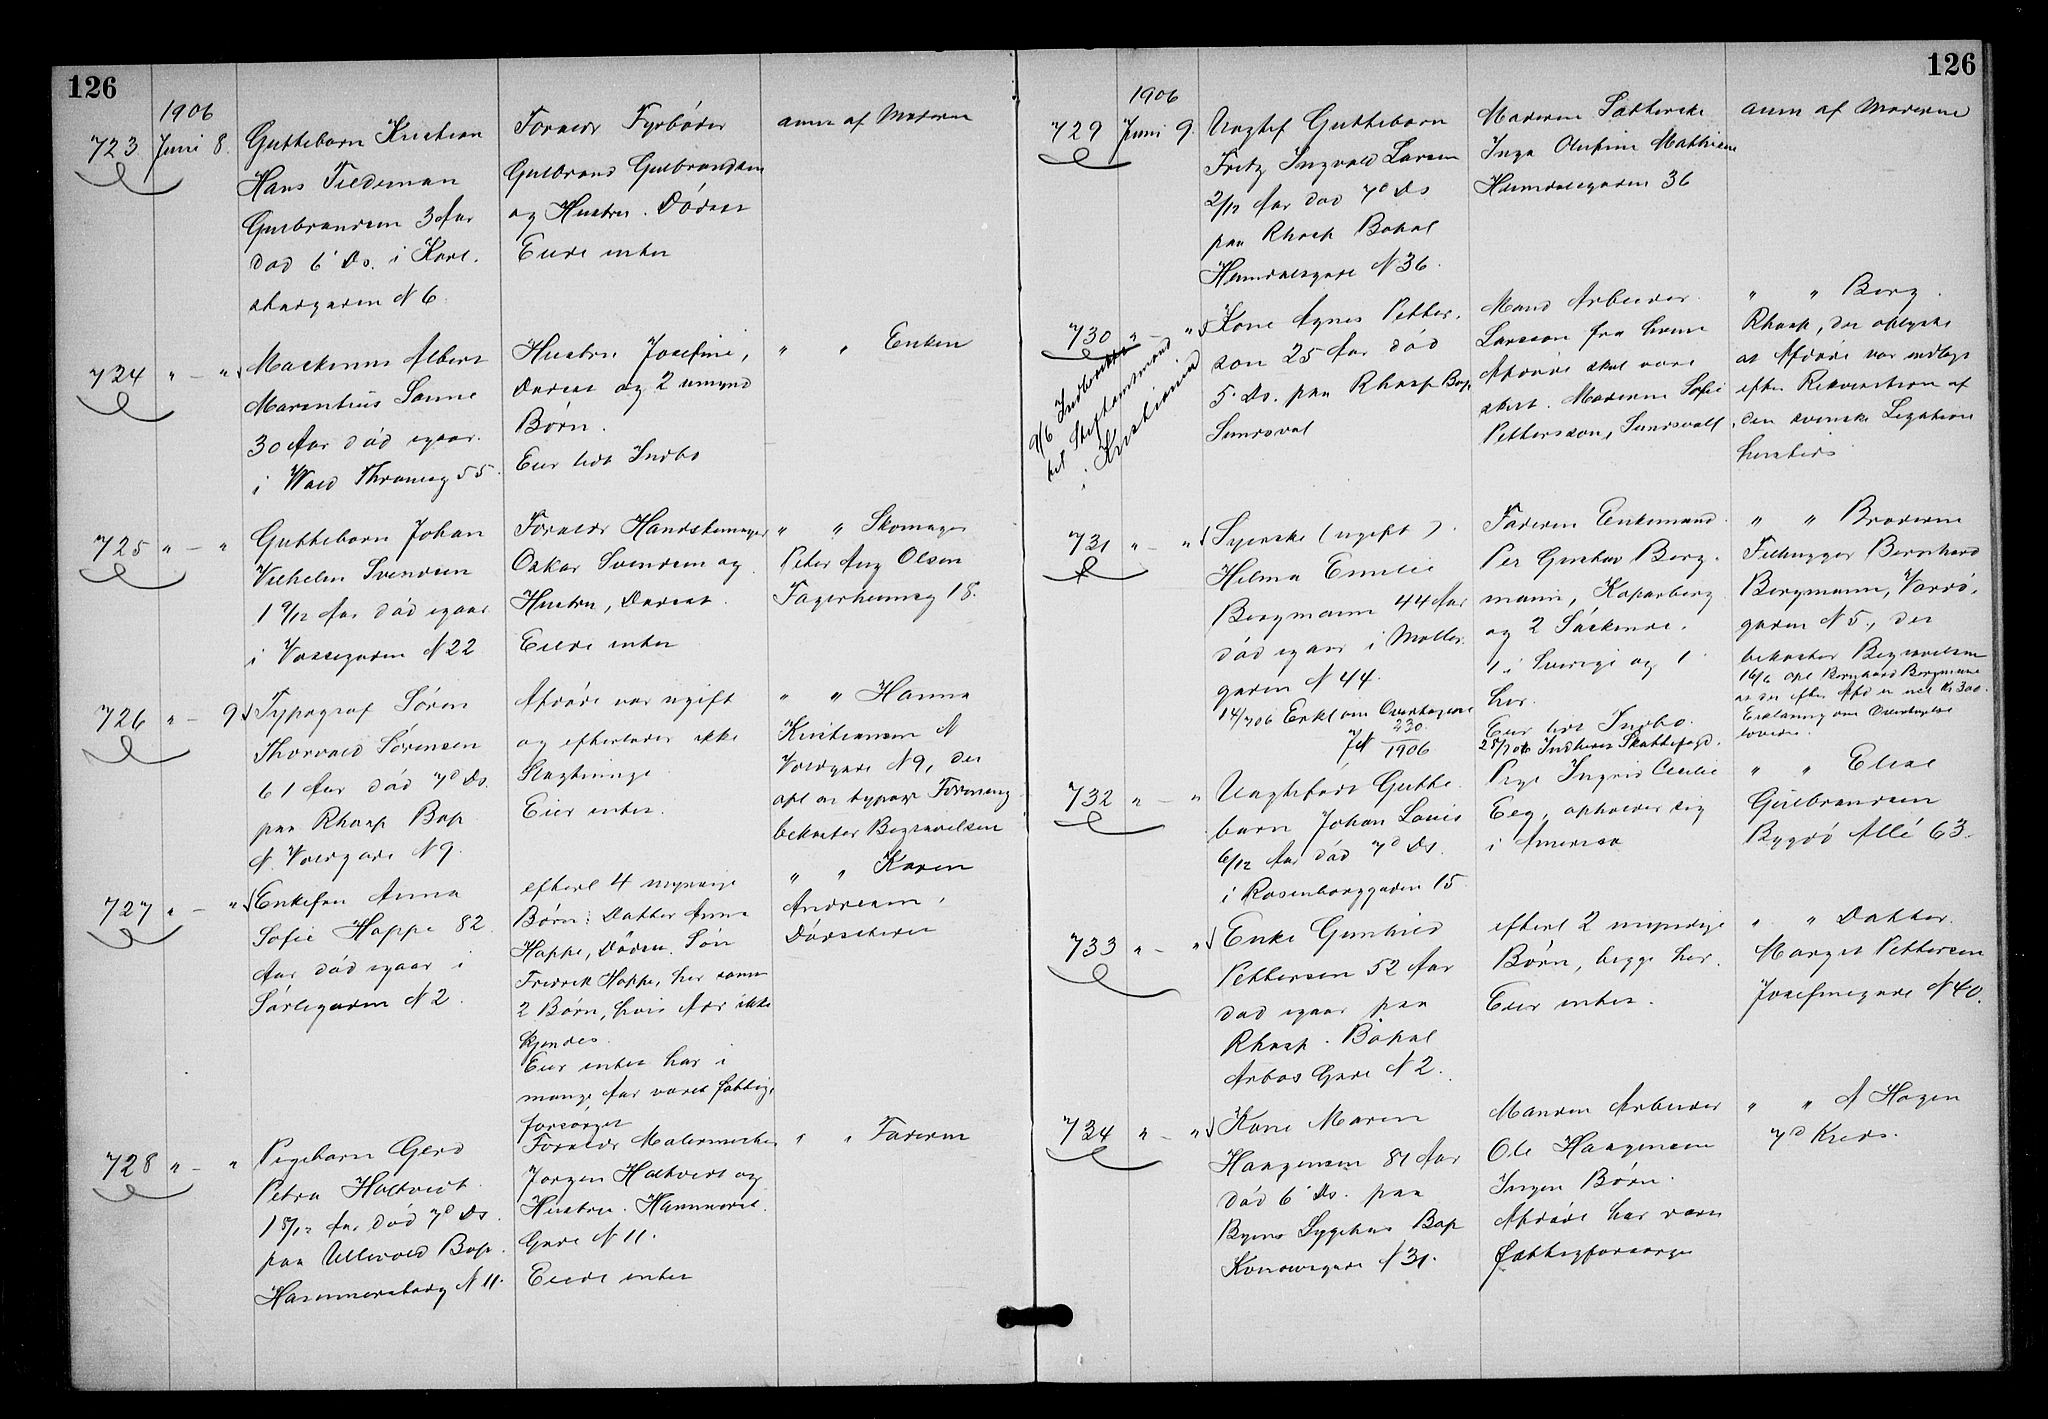 126
1906
723 Juni 8. Guttebarn Kristian
Hans Tiedeman
Gulbrandsen 3 Aar
død 6' Ds. i Karl.
stadgaden N 6.
Forældr Fyrbøder
Gulbrand Gulbrandsen
og Hustru. Dødsat
Eiede intet
anm af Moderen
724 " — " Maskinm Albert
Marentius Sanne
30 Aar død igaar
i Wald Thranesg 55.
Hustru Josefine,
Dødsat og 2 umynd
Børn.
Eier lidt Indbo
" " Enken
725 " — " Guttebarn Johan
Vilhelm Svendsen
1 9/12 Aar død igaar
i Vossegaden N 22
Forældr Handskemager
Oskar Svendsen og
Hustru, Dødsat.
Eiede intet
" " Skomager
Peter Aug Olsen
Fagerheimsg 18.
726 " — 9. Typograf Søren
Thorvald Sørensen
61 Aar død 7d Ds.
paa Rhosp Bop
N. Voldgade N 9.
Afdøde var ugift
og efterlader ikke
Slægtninge.
Eier intet.
" " Hanna
Kristiansen N
Voldgade N 9, der
opl at typogr Forening
bekoster Begravelsen
727 " — " Enkefru Anna
Sofie Hoppe 82
Aar død igaar i
Sørligaden N 2.
efterl 4 myndige
Børn: Datter Anna
Hoppe, Døden. Søn
Fredrik Hoppe, her samt
2 Børn, hvis Adr ikke
kjendes.
Eier intet har i
mange Aar været fattig.
forsørget
" " Karen
Andresen,
Dødsstedet
728 " — " Pigebarn Gerd
Petra Holtvedt
1 8/12 Aar død 7d Ds.
paa Ullevold Bop.
Hammersborg N 11.
Forældr Malermester
Jørgen Holtvedt og
Hustru. Hammersb.
Gade N 11.
Eiede intet
" " Faderen
126
1906
729 Juni 9. Uægtef Guttebarn
Fritz Ingvald Larsen
2/12 Aar død 7d Ds
paa Rhosp Bopal
Heimdalsgade N 36.
Moderen Sætterske
Inga Olufine Mathisen
Heimdalsgaden 36
anm af Moderen
730 " — " Kone Agnes Petter.
son 25 Aar død
5. Ds. paa Rhosp Bop.
Sundsval
9/6 Indberettet
til Stiftamtmand
i Kristiania
Mand Arbeider
Larsson fra hvem
Afdøde skal være
skilt. Moderen Sofie
Pettersson, Sundsvall
" " Borg.
Rhosp, der oplyste
at Afdøde var indlagt
efter Rekvisition af
den svenske Legation
hersteds
731 " — " Syerske (ugift)
Hilma Emilie
Bergmann 44 Aar
død igaar i Møller.
gaden N 44.
14/7 06 Erkl om Overtagelse
Jf 230/1906
Faderen Enkemand
Per Gustav Berg.
mann, Koparberg
og 2 Søskende.
1 i Sverige og 1
her.
Eier lidt Indbo.
25/7 06 Indberet Skattefogd.
" " Broderen
Filhugger Bernhard
Bergmann, Vardø.
gaden N 5, der
bekoster Begravelsen
16/6 opl Bernhard Bergmann
at der efter Afd er ca Kr 300.
Erklæring om Overtagelse
lovedes.
732 " — " Uægtefødt Gutte.
barn Johan Louis
6/12 Aar død 7d Ds.
i Rosenborggaden 15
Pige Ingrid Cecilie
Eeg, opholder sig
i Amerika
" " Elise
Gulbrandsen
Bygdø Allé 63.
733 " — " Enke Gunhild
Pettersen 52 Aar
død igaar paa
Rhosp. Bopal
Arbos Gade N 2.
efterl 2 myndige
Børn, begge her.
Eier intet.
" " Datter.
Margit Pettersen
Josefinegade N 40.
734 " — " Kone Maren
Haagensen 81 Aar
død 6' Ds. paa
Byens Sygehus Bop
Konowsgade N 31.
Manden Arbeider
Ole Haagensen
Ingen Børn.
Afdøde har været
fattigforsørget
" " A Hagen
7d Kreds.